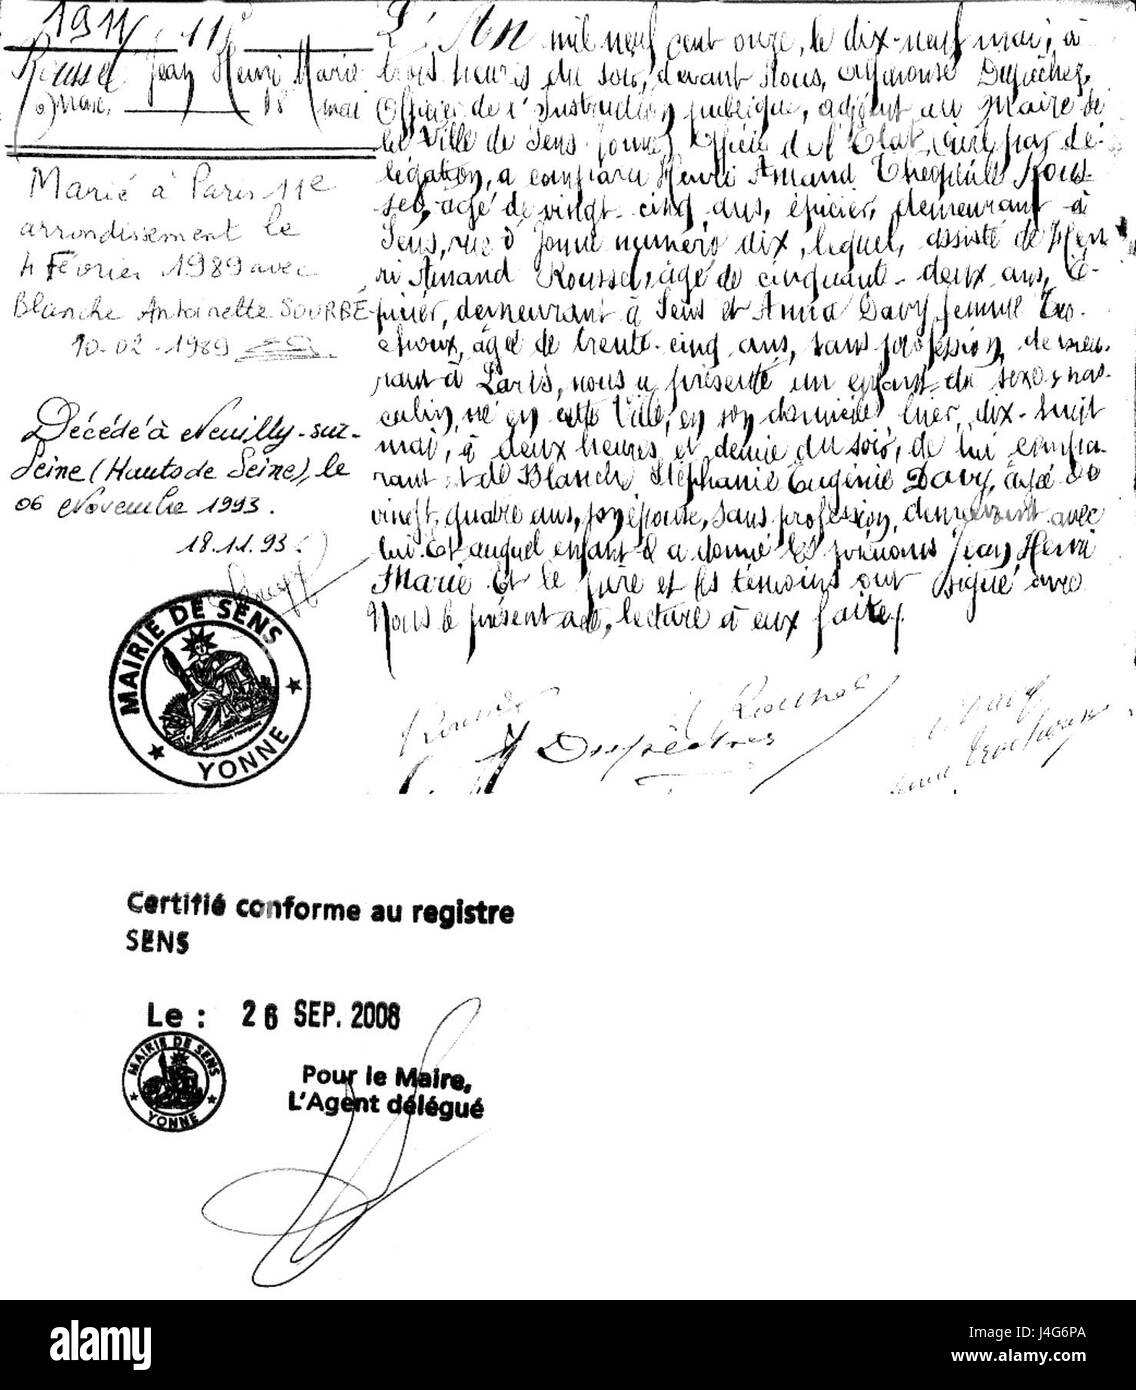 1911 11
Roussel Jean Henri Marie
18 mai
Marié à Paris 11e
arrondissement le
4 Février 1989 avec
Blanche Antoinette SOURBÉ
10-02-1989
Décédé à Neuilly-sur-
Seine (Hauts de Seine), le
06 Novembre 1993.
18.11.93.
L'An mil neuf cent onze, le dix-neuf mai, à
trois heures du soir, devant Nous, Alphonse
Officier de l'Instruction publique, adjoint au Maire de
la Ville de Sens Yonne, Officier de l'Etat civil par dé-
légation, a comparu Henri Amand Théophile Rous-
sel, agé de vingt-cinq ans, épicier, demeurant à
Sens, rue d'Yonne numéro dix, lequel, assisté de Hen-
ri Amand Roussel, âgé de cinquante-deux ans, E-
picier, demeurant à Sens et Anna Davy femme Tro-
choux, âgée de trente-cinq ans, sans profession, demeu-
rant à Paris, nous a présenté un enfant du sexe mas-
culin, né en cette Ville, en son domicile hier, dix-huit
mai, à deux heures et demie du soir, de lui compa-
rant et de Blanche Stéphanie Eugénie Davy, âgée de
vingt-quatre ans, son épouse, sans profession, demeurant avec
lui. Et auquel enfant il a donné les prénoms Jean Henri
Marie. Et le père et les témoins ont signé avec
Nous le présent acte, lecture à eux faite.
MAIRIE DE SENS
YONNE
Certifié conforme au registre
SENS
Le : 26 SEP. 2008
MAIRIE DE SENS
YONNE
Pour le Maire,
L'Agent délégué
alamy
Image ID: J4G6PA
www.alamy.com